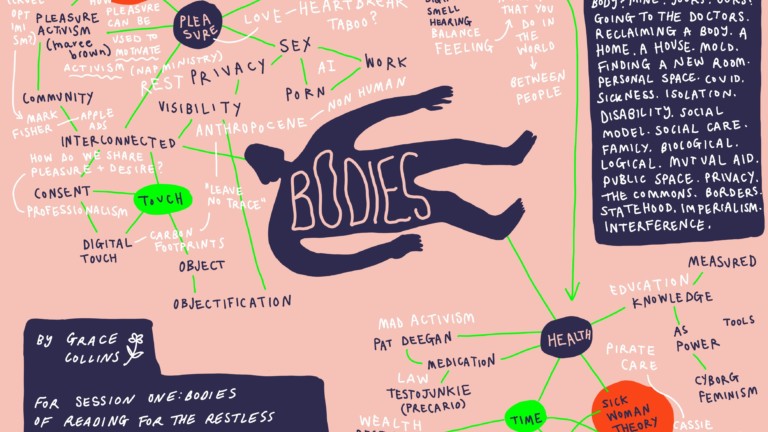 HOW
PLEASURE
CAN BE
USED TO
MOTIVATE
ACTIVISM (NAP MINISTRY)
OPT
IMI
SM?
PLEASURE
ACTIVISM
(maree
brown)
PLEA
SURE
LOVE — HEARTBREAK
TABOO?
SMELL
HEARING
BALANCE
FEELING
THAT YOU
DO IN
THE
WORLD
BETWEEN
PEOPLE
REST
PRIVACY
SEX
AI
WORK
PORN
NON HUMAN
VISIBILITY
ANTHROPOCENE
COMMUNITY
MARK
FISHER
APPLE
ADS
INTERCONNECTED
HOW DO WE SHARE
PLEASURE + DESIRE?
CONSENT
PROFESSIONALISM
TOUCH
"LEAVE
NO TRACE"
CARBON
FOOTPRINTS
DIGITAL
TOUCH
OBJECT
OBJECTIFICATION
BODIES
GOING TO THE DOCTORS.
RECLAIMING A BODY. A
HOME. A HOUSE. MOLD.
FINDING A NEW ROOM.
PERSONAL SPACE. COVID.
SICKNESS. ISOLATION.
DISABILITY. SOCIAL
MODEL. SOCIAL CARE.
FAMILY. BIOLOGICAL.
LOGICAL. MUTUAL AID.
PUBLIC SPACE. PRIVACY.
THE COMMONS. BORDERS.
STATEHOOD. IMPERIALISM.
INTERFERENCE.
BY GRACE
COLLINS
FOR SESSION ONE: BODIES
OF READING FOR THE RESTLESS
MAD ACTIVISM
PAT DEEGAN
MEDICATION
LAW
TESTOJUNKIE
(PRECARIO)
WEALTH
HEALTH
TIME
MEASURED
EDUCATION
KNOWLEDGE
AS
POWER
TOOLS
CYBORG
FEMINISM
PIRATE
CARE
SICK
WOMAN
THEORY
CASSIE